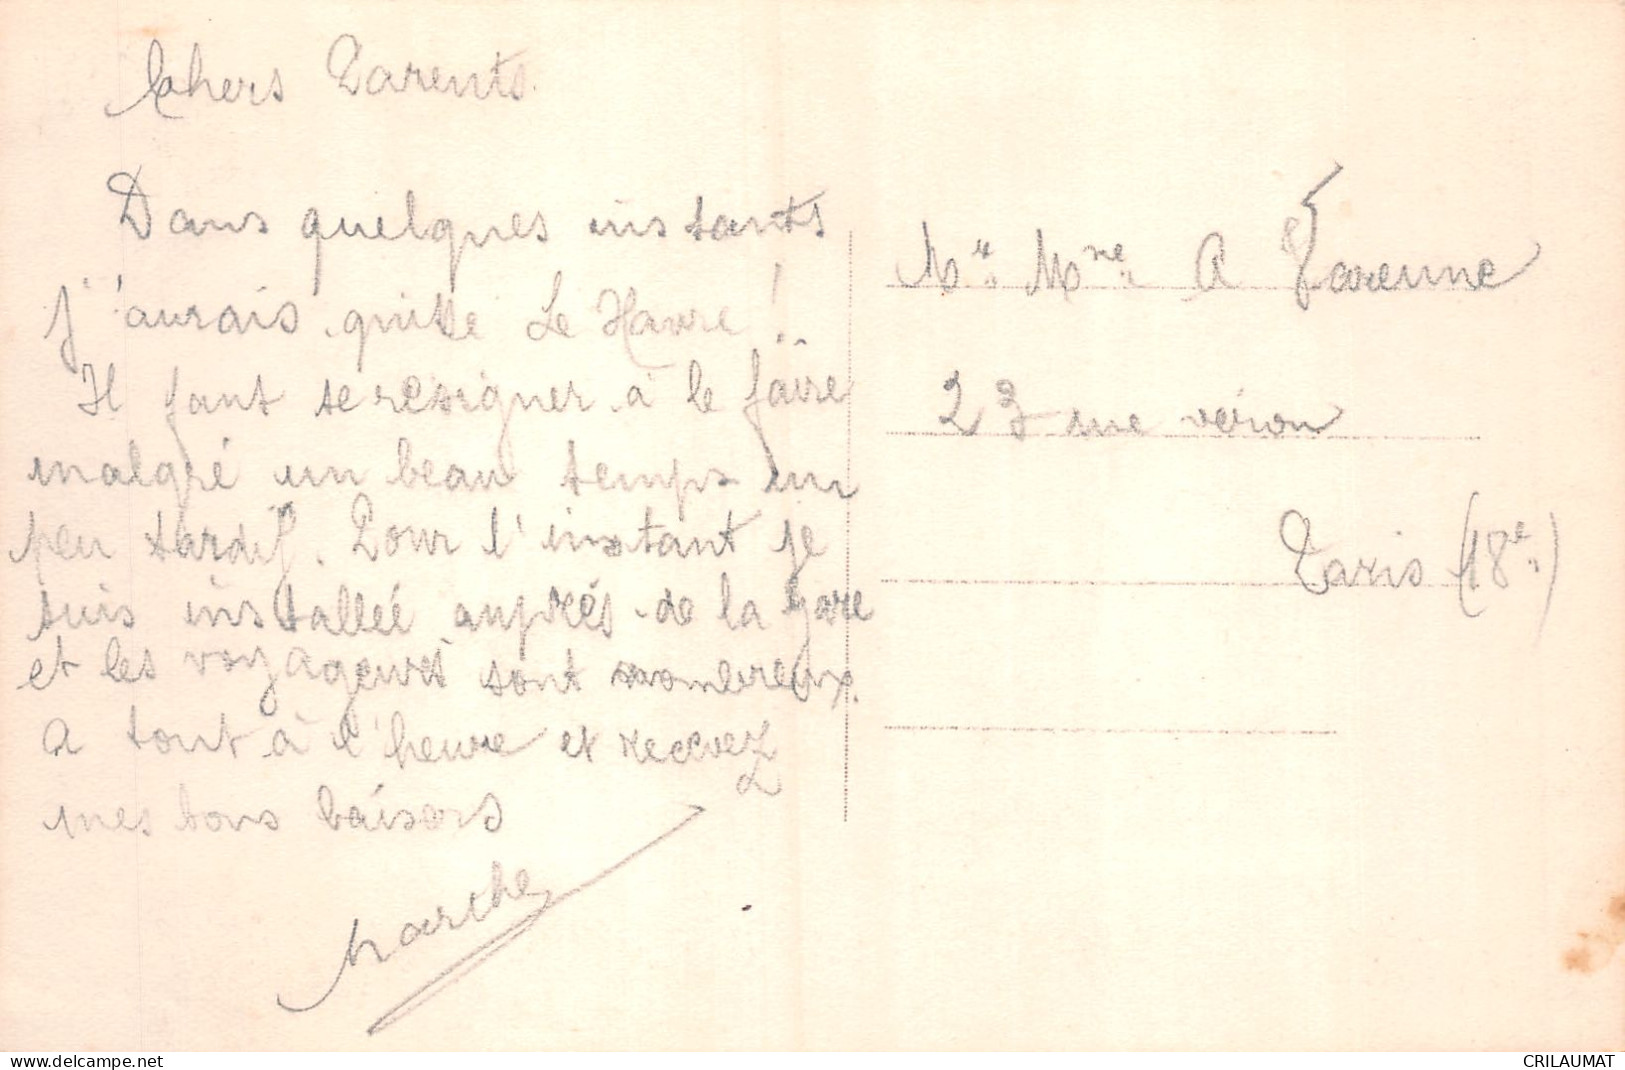 Chers Parents.
Dans quelques instants
j'aurais quitte Le Havre !..
Il faut se résigner à le faire
malgré un beau temps un
peu tardif. Pour l'instant je
suis installeé auprés de la gare
et les voyageurs sont nombreux.
A tout à l'heure et recevez
mes bons baisers
Marthe
Mr. Mme. A Varenne
23 rue véron
Paris (18e.)
www.delcampe.net
CRILAUMAT